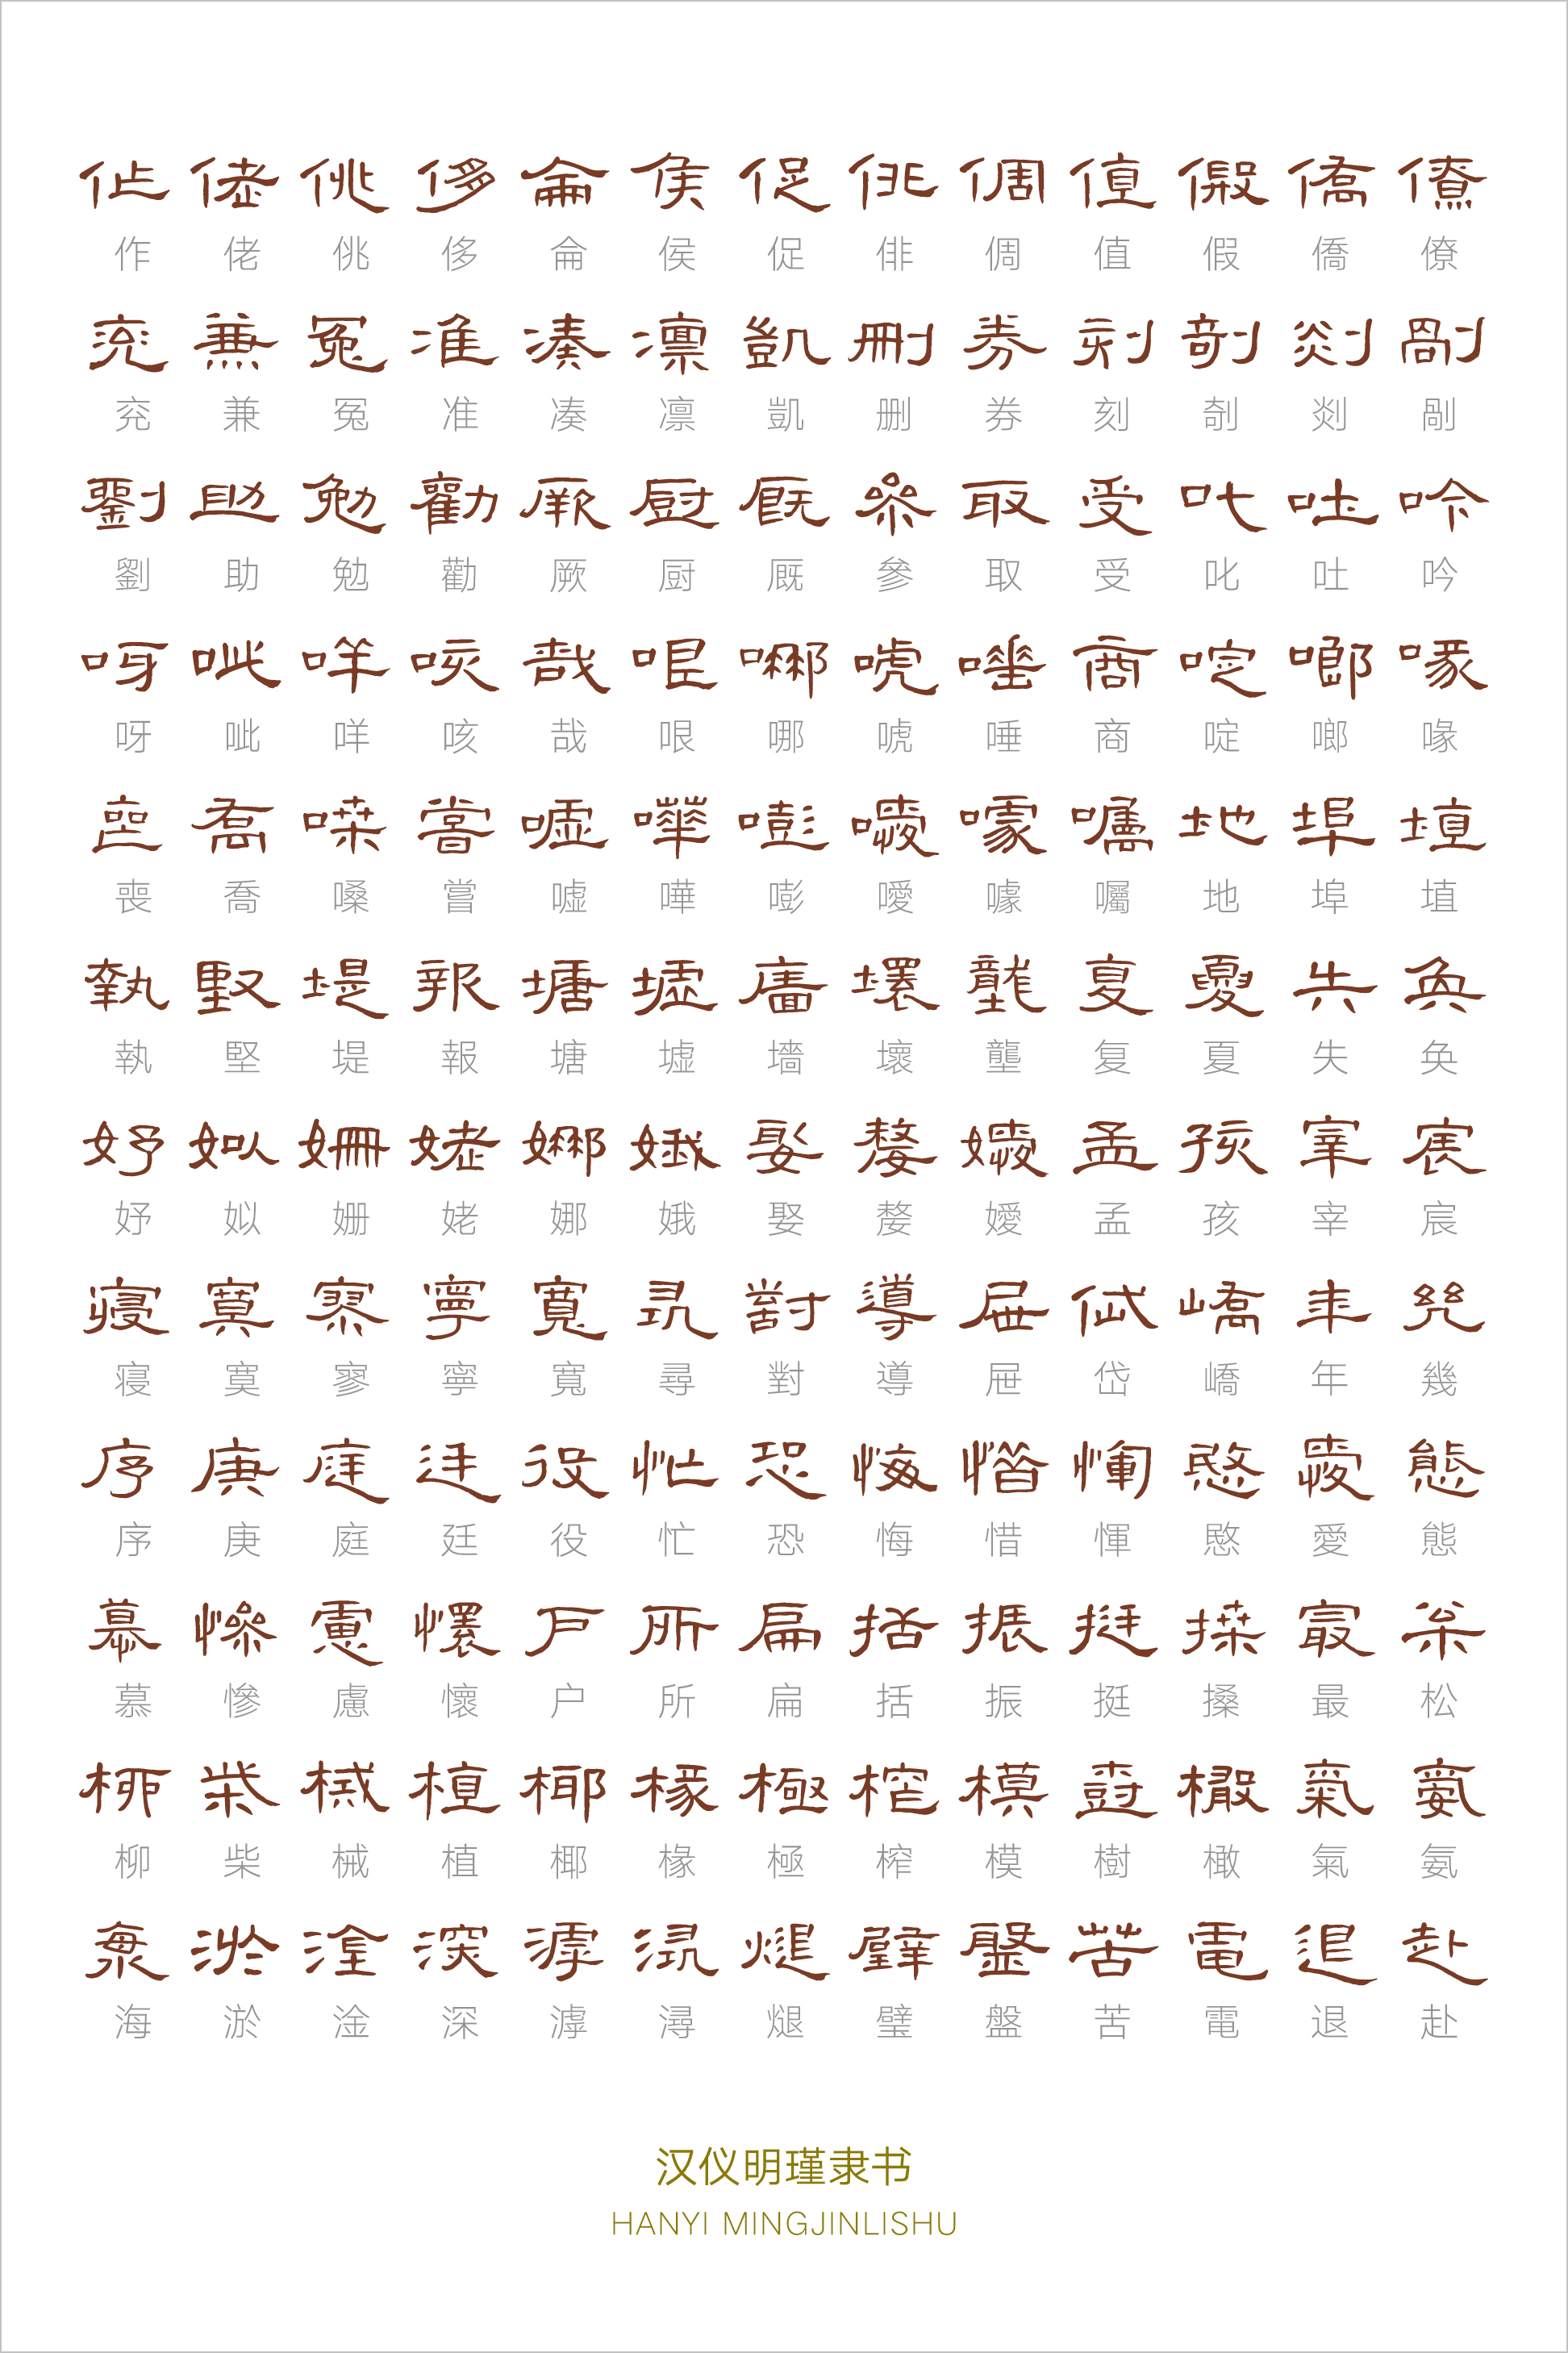 作佬佻侈侖侯促俳倜值假僑僚
作佬佻侈侖侯促俳倜值假僑僚
兖兼冤准凑凛凱删券刻剞剡剮
兖兼冤准凑凛凱删券刻剞剡剮
劉助勉勸厥厨厩參取受叱吐吟
劉助勉勸厥厨厩參取受叱吐吟
呀呲咩咳哉哏哪唬唾商啶啷喙
呀呲咩咳哉哏哪唬唾商啶啷喙
喪喬嗓嘗嘘嘩嘭噯噱囑地埠埴
喪喬嗓嘗嘘嘩嘭噯噱囑地埠埴
執堅堤報塘墟墻壞壟复夏失奂
執堅堤報塘墟墻壞壟复夏失奂
妤姒姗姥娜娥娶嫠嬡孟孩宰宸
妤姒姗姥娜娥娶嫠嬡孟孩宰宸
寝寞寥寧寬尋對導屉岱嶠年幾
寝寞寥寧寬尋對導屉岱嶠年幾
序庚庭廷役忙恐悔惜惲愍愛態
序庚庭廷役忙恐悔惜惲愍愛態
慕慘慮懷户所扁括振挺搡最松
慕慘慮懷户所扁括振挺搡最松
柳柴械植椰椽極榨模樹橄氣氨
柳柴械植椰椽極榨模樹橄氣氨
海淤淦深滹潯煺璧盤苦電退赴
海淤淦深滹潯煺璧盤苦電退赴
汉仪明瑾隶书
HANYI MINGJINLISHU